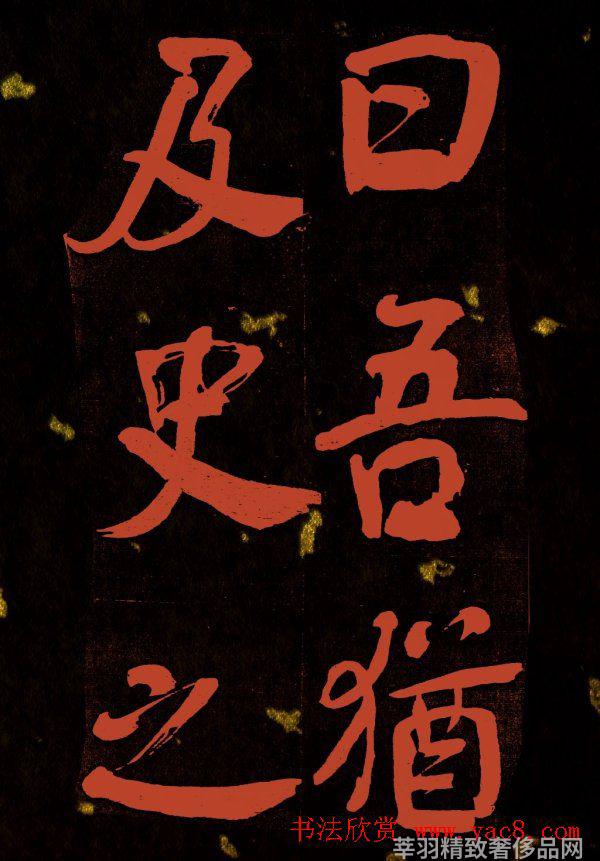 曰吾猶
及史之
书法欣赏 www.yac8.com
莘羽精致奢侈品网